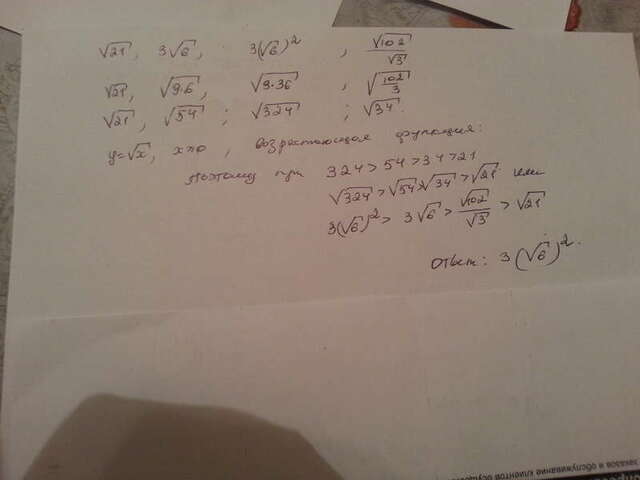 √21, 3√6, 3(√6)², √102/√3
√21, √9·6, √9·36, √102/3
√21, √54; √324; √34.
y=√x, x>0, возрастающая функция:
поэтому при 324>54>34>21
√324>√54>√34>√21 или
3(√6)²>3√6>√102/√3>√21
Ответ: 3(√6)².
заказов и обслуживание клиентов осущест